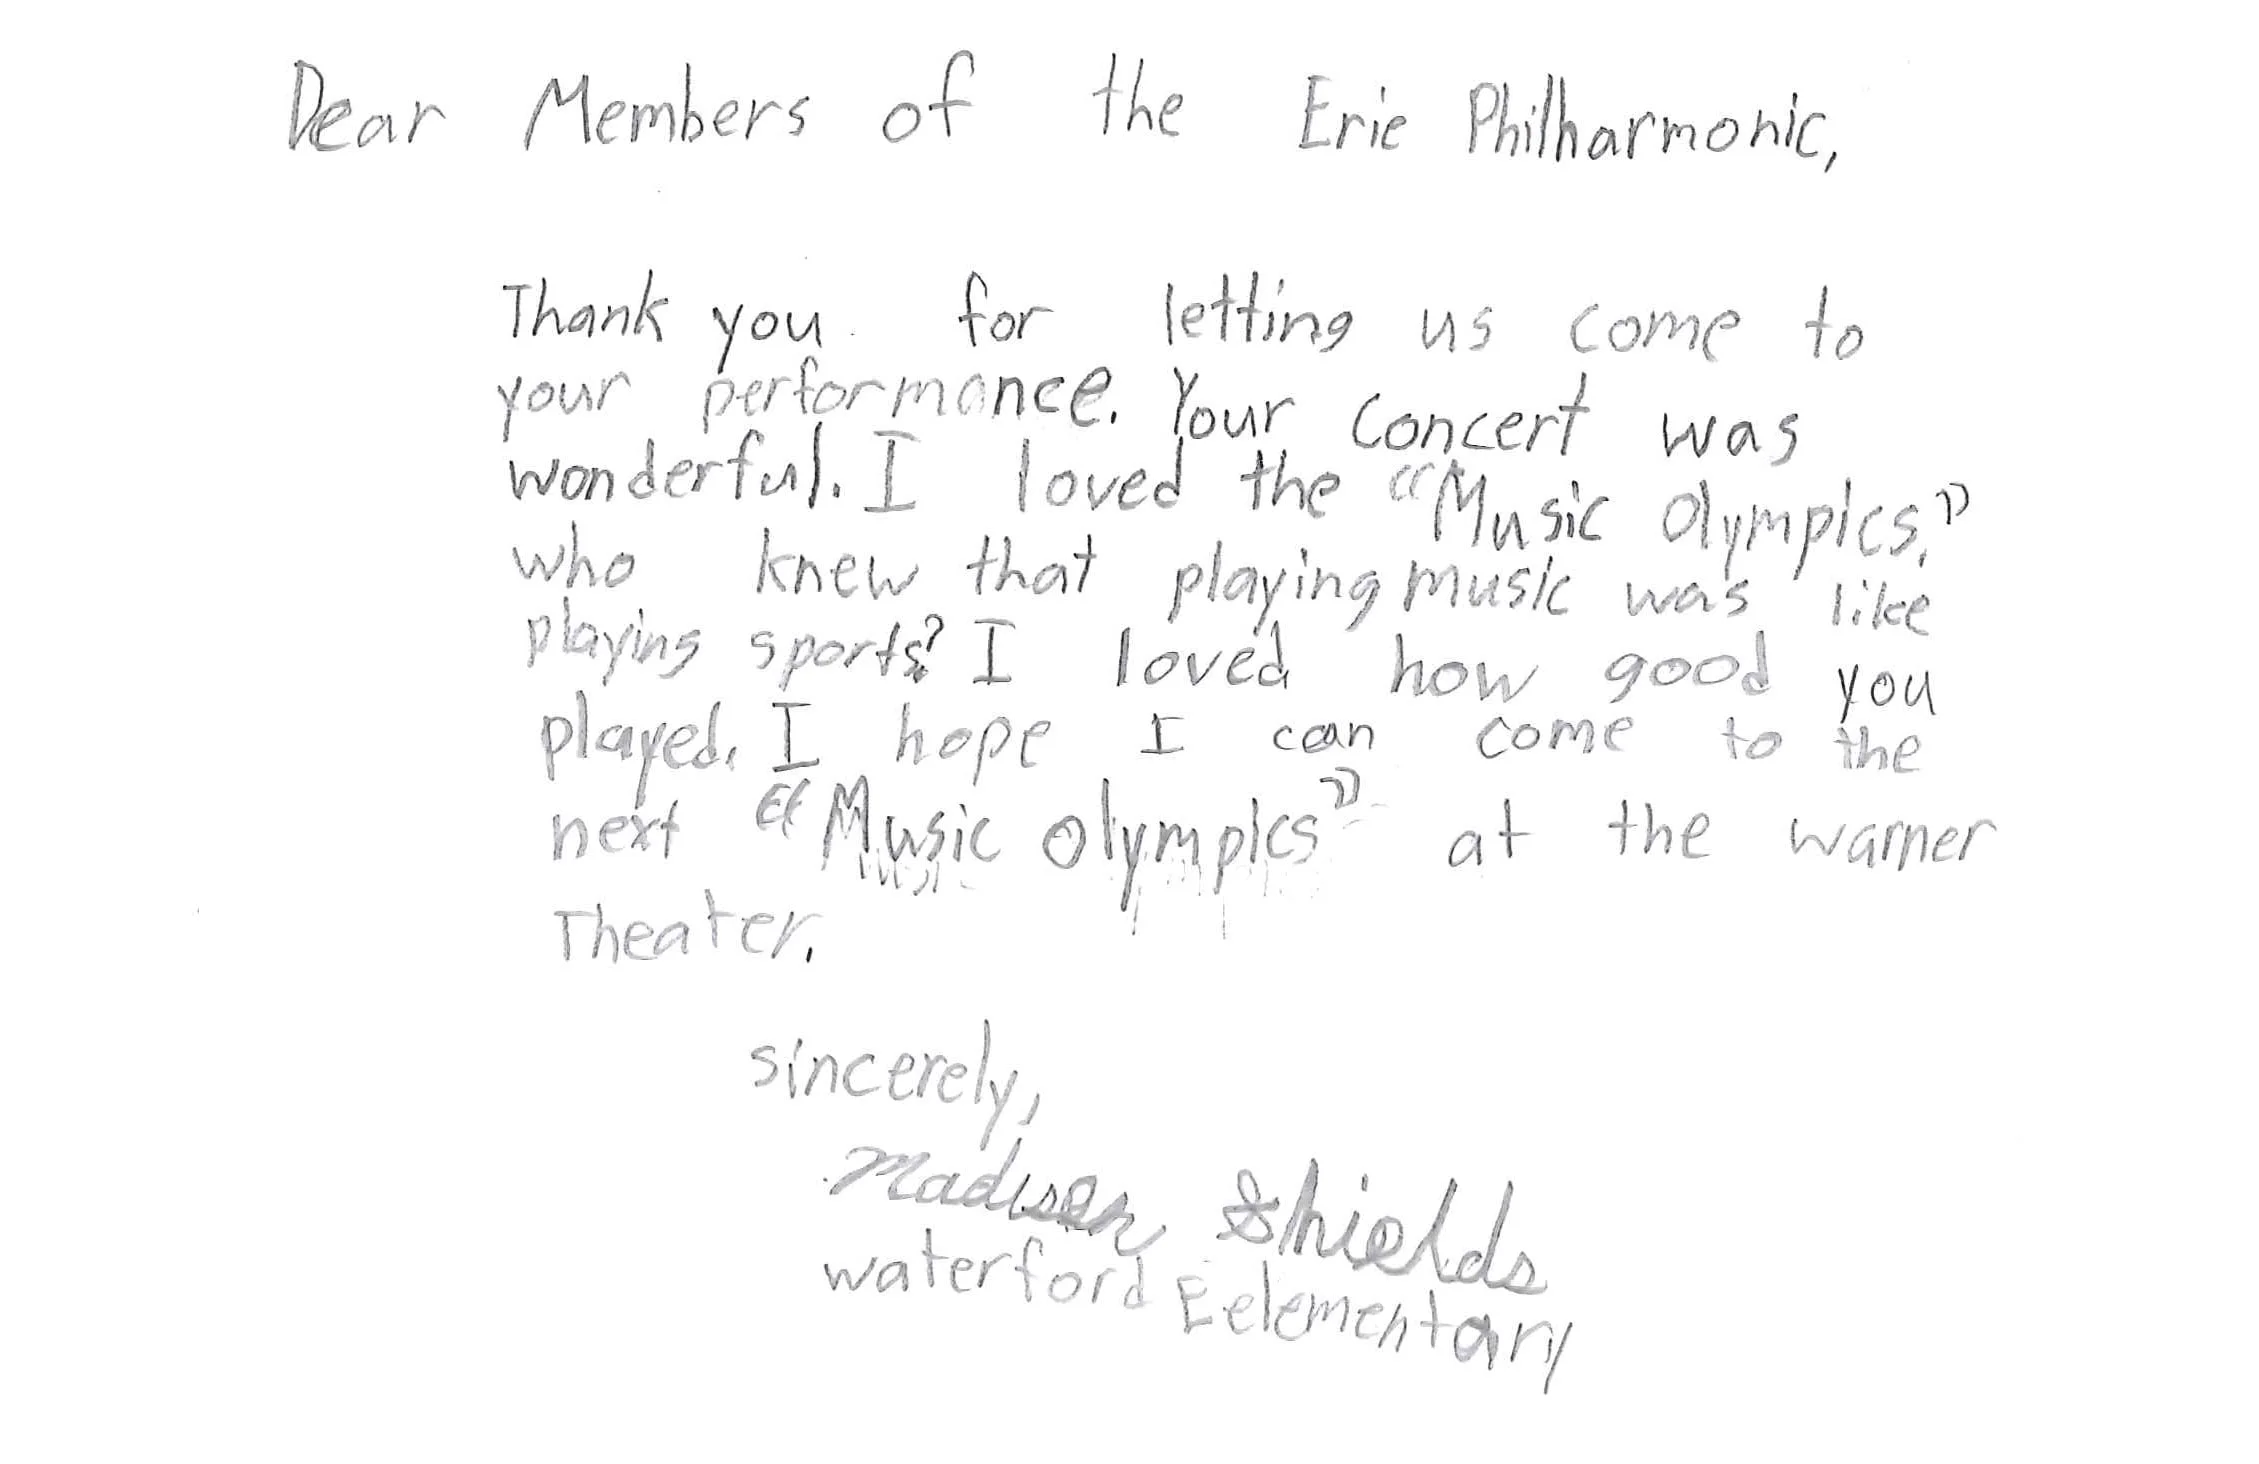 Dear Members of the Erie Philharmonic,
Thank you for letting us come to
your performance. Your concert was
wonderful. I loved the "Music Olympics."
who knew that playing music was like
playing sports? I loved how good you
played. I hope I can come to the
next "Music Olympics" at the warner
Theater.
sincerely,
Madison Shields
waterford Eelementary